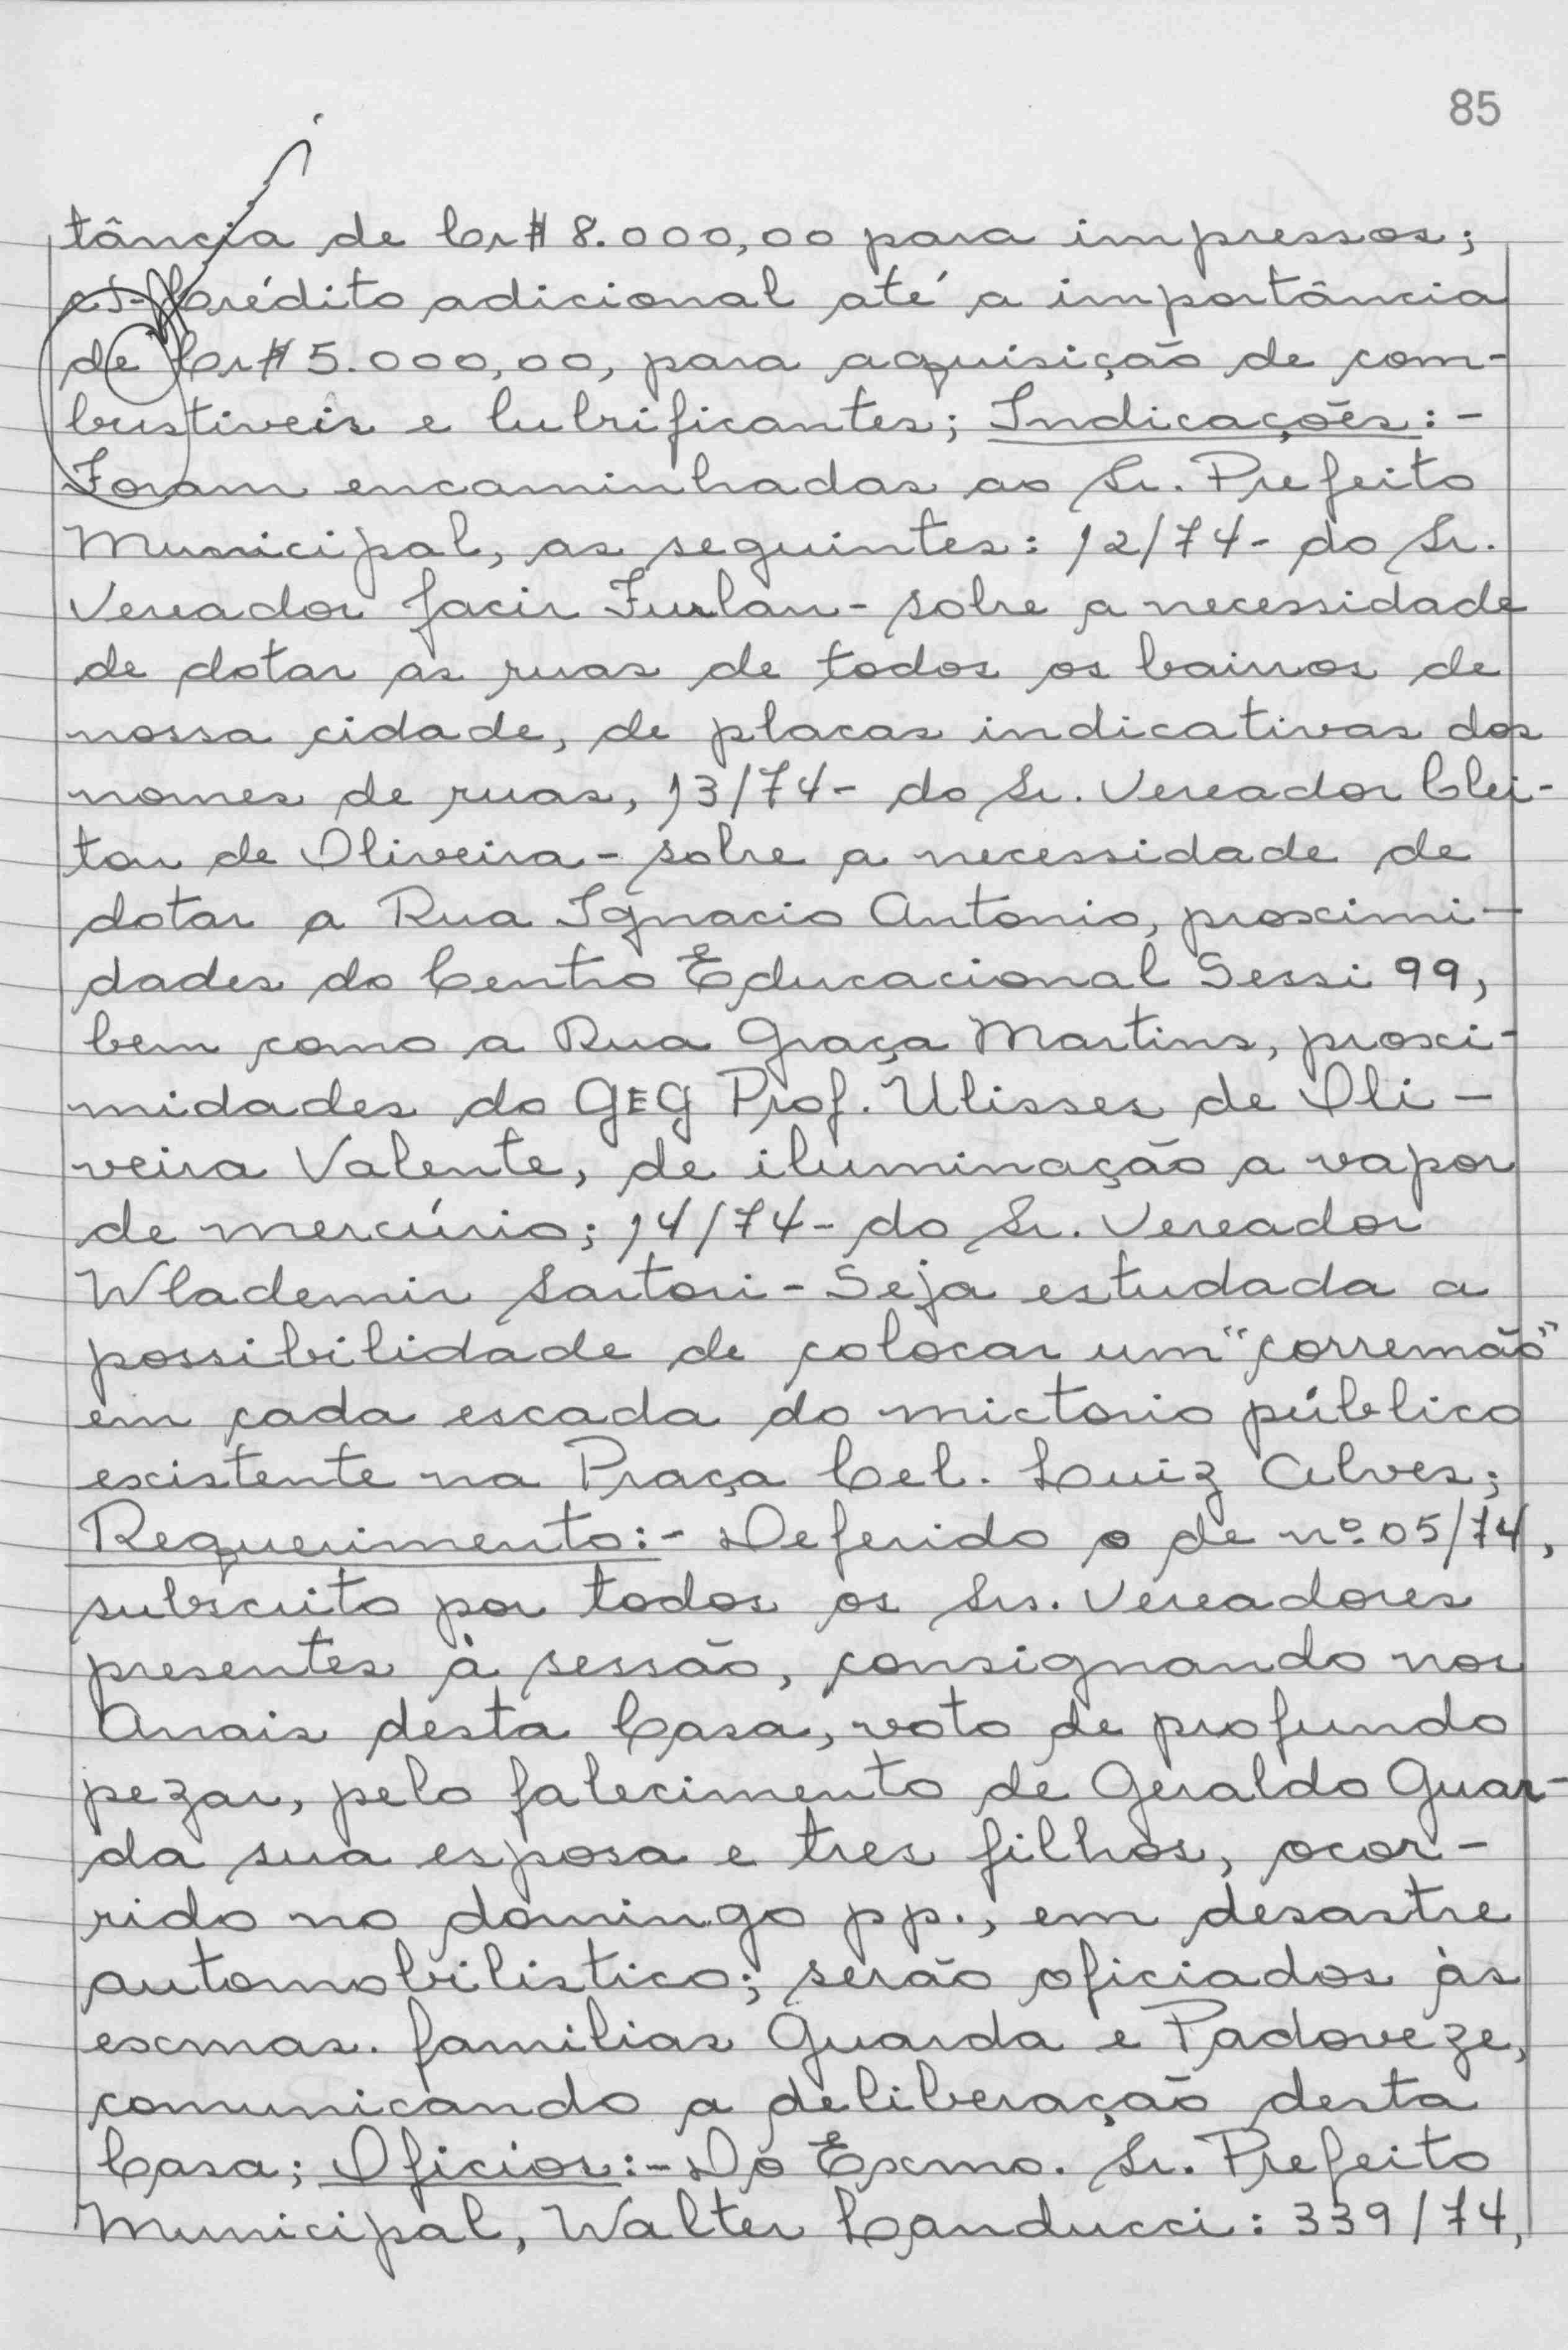 85
tância de Cr$ 8.000,00 para impressos;
crédito adicional até a importância
de Cr$ 5.000,00, para aquisição de com-
bustiveis e lubrificantes; Indicações:-
Foram encaminhadas ao Sr. Prefeito
Municipal, as seguintes: 12/74- do Sr.
Vereador Jacir Furlan - sobre a necessidade
de dotar as ruas de todos os bairros de
nossa cidade, de placas indicativas dos
nomes de ruas, 13/74- do Sr. Vereador Clei-
ton de Oliveira - sobre a necessidade de
dotar a Rua Ignacio Antonio, proximi-
dades do Centro Educacional Sessi 99,
bem como a Rua Graça Martins, proxi-
midades do GEG Prof. Ulisses de Oli-
veira Valente, de iluminação a vapor
de mercúrio; 14/74- do Sr. Vereador
Wlademir Sartori - Seja estudada a
possibilidade de colocar um "corremão"
em cada escada do mictorio público
existente na Praça Cel. Luiz Alves;
Requerimento:- Deferido o de nº 05/74,
subscrito por todos os Srs. Vereadores
presentes à sessão, consignando nos
Anais desta Casa, voto de profundo
pezar, pelo falecimento de Geraldo Guar-
da sua esposa e tres filhos, ocor-
rido no domingo pp., em desastre
automobilistico; serão oficiados às
exmas. familias Guarda e Padoveze,
comunicando a deliberação desta
Casa; Oficios:- Do Exmo. Sr. Prefeito
Municipal, Walter Canducci: 339/74,